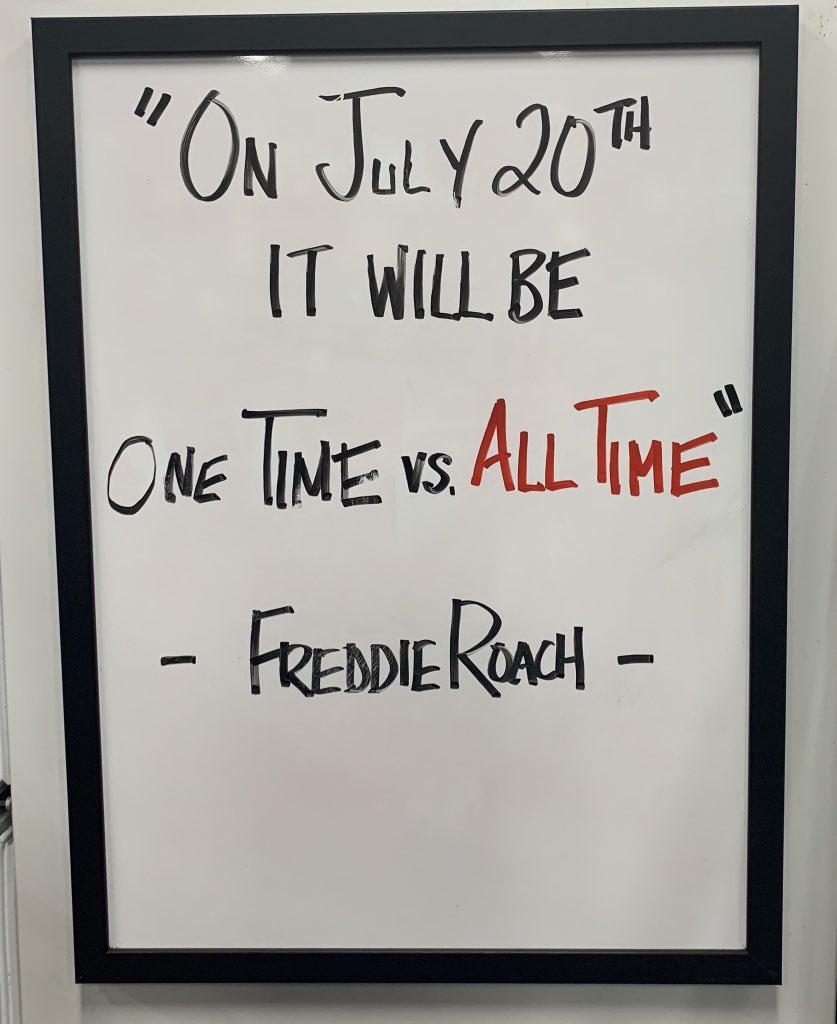 "ON JULY 20TH
IT WILL BE
ONE TIME VS. ALL TIME"
- FREDDIE ROACH -